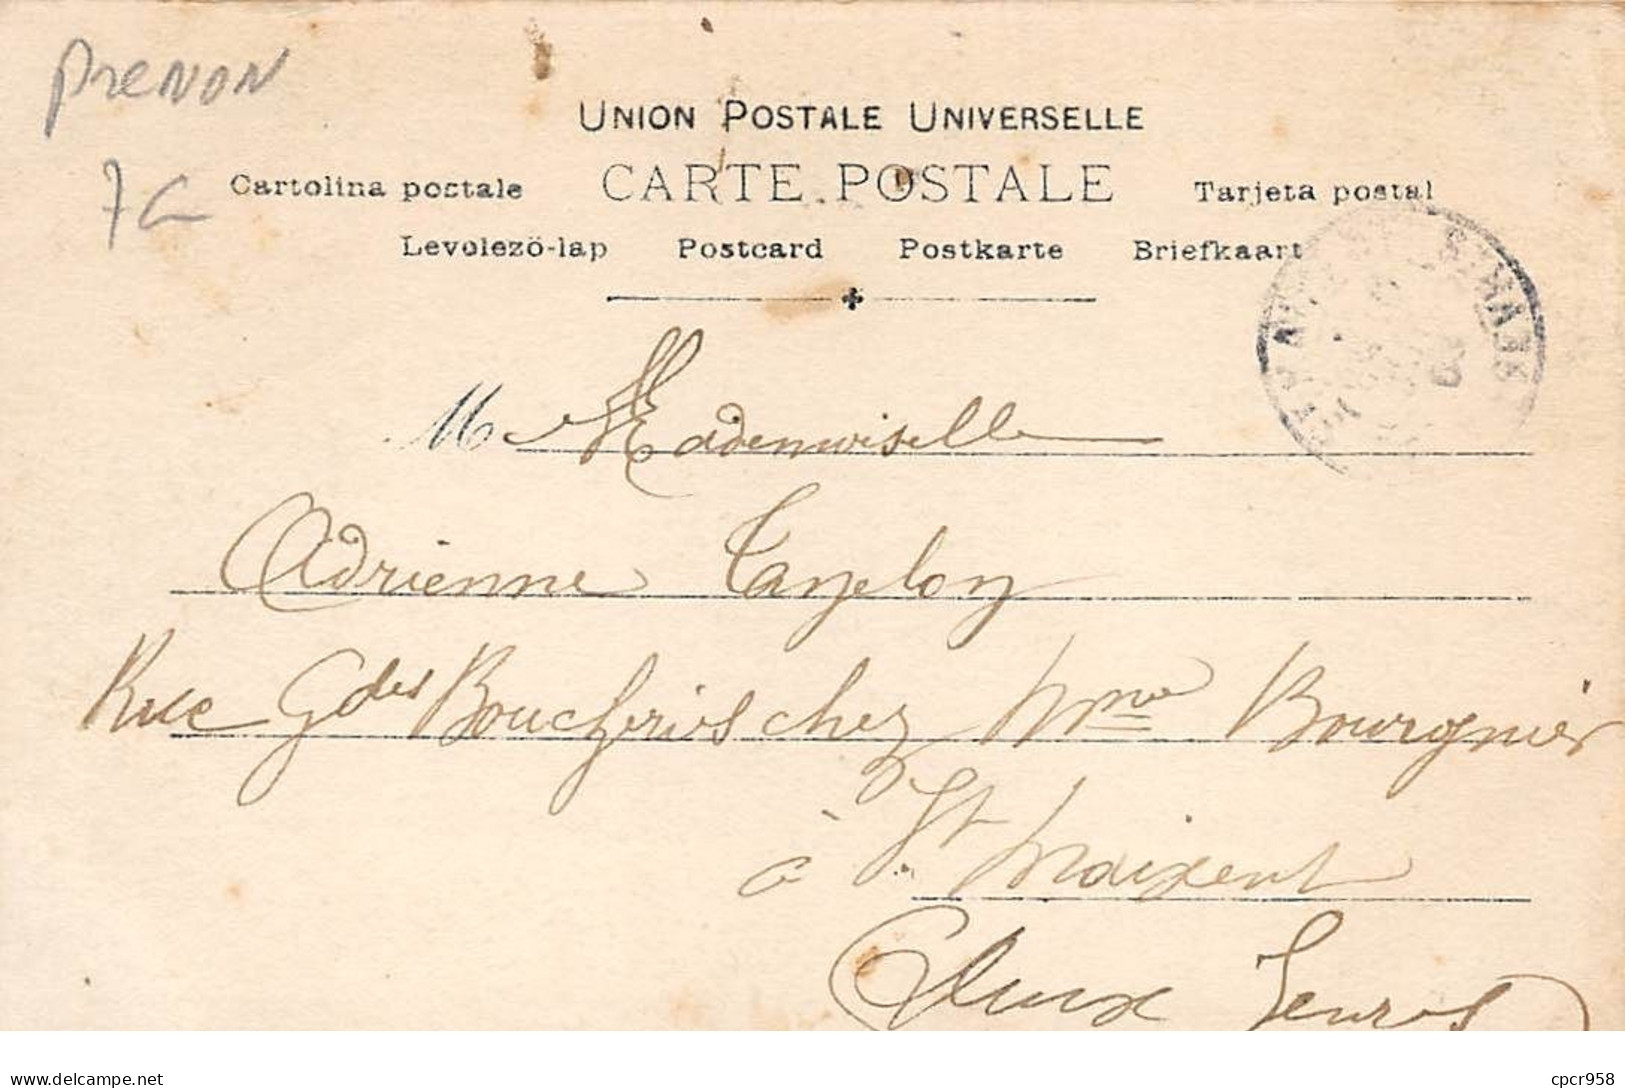 PRENON
7C
UNION POSTALE UNIVERSELLE
Cartolina postale CARTE POSTALE Tarjeta postal
Levelező-lap Postcard Postkarte Briefkaart
M Mademoiselle
Adrienne
Rue Gdes Boucheries chez Mme Bourgnier
à St Maixent
Deux Sevres
delcampe.net
cpcr958